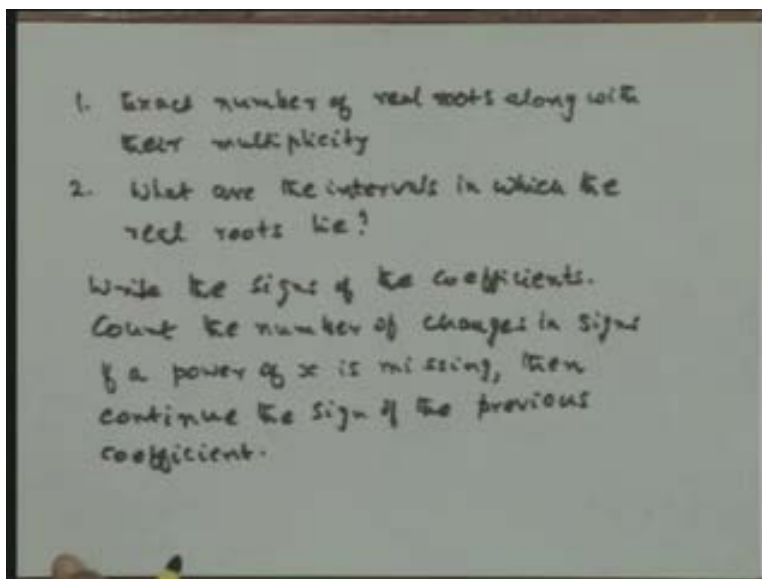 1. Exact number of real roots along with
their multiplicity
2. What are the intervals in which the
real roots lie?
Write the signs of the coefficients.
Count the number of changes in signs
If a power of x is missing, then
continue the sign of the previous
coefficient.